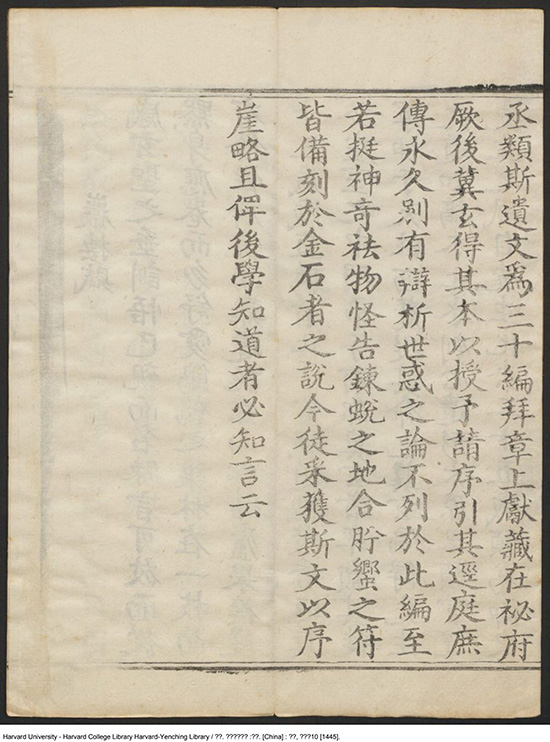 丞類斯遺文爲三十編拜章上獻藏在祕府
厥後冀玄得其本以授予請序引其逕庭庶
傳永久別有辯析世惑之論不列於此編至
若挺神奇祛物怪告鍊蛻之地合肸蠁之符
皆備刻於金石者之說今徒采獲斯文以序
崖略且俾後學知道者必知言云
Harvard University - Harvard College Library Harvard-Yenching Library / ??. ?????? :??. [China] : ??, ???10 [1445].